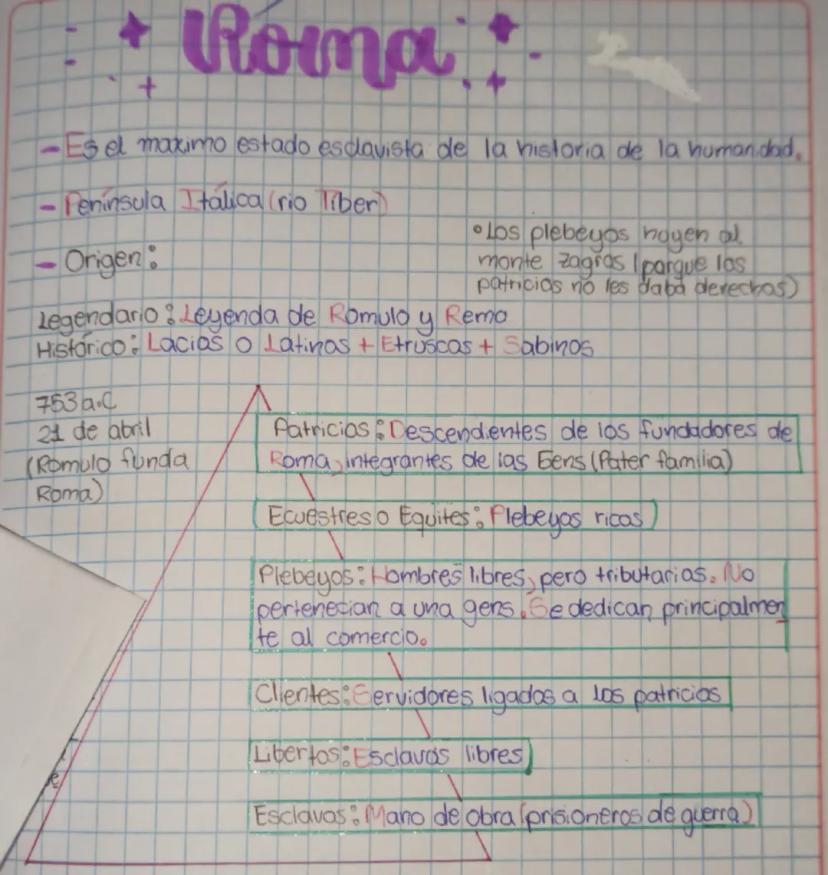 Roma
- Es el maximo estado esclavista de la historia de la humanidad.
- Península Itálica (rio Tíber)
- Origen:
• Los plebeyos huyen al
monte zagros (porque los
patricios no les daba derechos)
Legendario: Leyenda de Romulo y Remo
Histórico: Lacios o Latinos + Etruscos + Sabinos
753 a.C
21 de abril
(Romulo funda
Roma)
Patricios: Descendientes de los fundadores de
Roma, integrantes de las Gens (Pater familia)
Ecuestres o Equites: Plebeyos ricos
Plebeyos: Hombres libres, pero tributarios. No
pertenecian a una gens. Se dedican principalmen
te al comercio.
Clientes: Servidores ligados a los patricios
Libertos: Esclavos libres
Esclavos: Mano de obra (prisioneros de guerra)